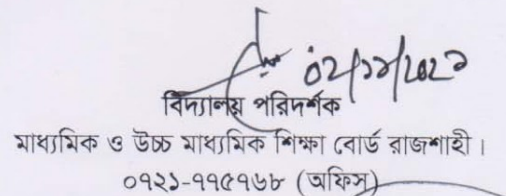 ০২/১১/২০২১
বিদ্যালয় পরিদর্শক
মাধ্যমিক ও উচ্চ মাধ্যমিক শিক্ষা বোর্ড রাজশাহী।
০৭২১-৭৭৫৭৬৮ (অফিস)